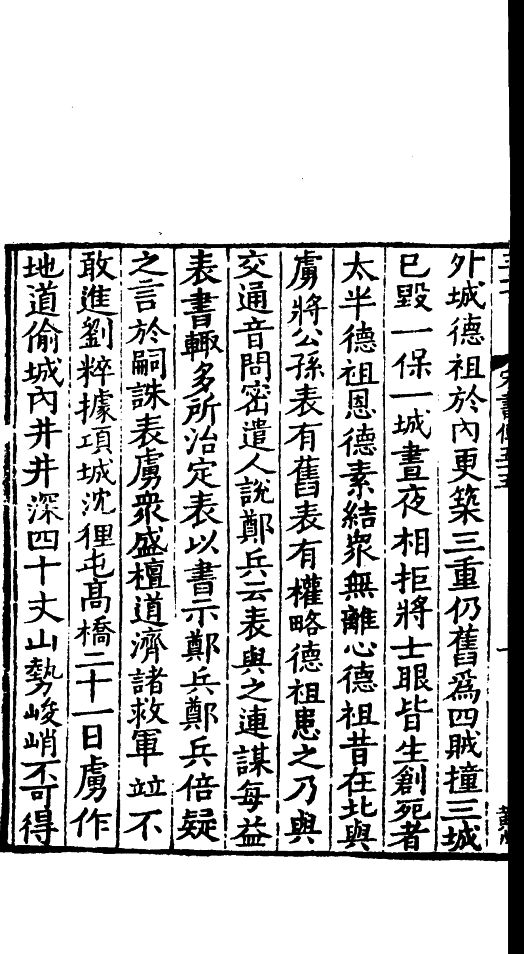 外城德祖於內更築三重仍舊爲四賊撞三城
已毀一保一城晝夜相拒將士眼皆生創死者
太半德祖恩德素結衆無離心德祖昔在北與
虜將公孫表有舊表有權略德祖患之乃與
交通音問密遣人說鄭兵云表與之連謀每益
表書輙多所治定表以書示鄭兵鄭兵倍疑
之言於嗣誅表虜衆盛檀道濟諸救軍並不
敢進劉粹據項城沈狸屯高橋二十一日虜作
地道偷城內井井深四十丈山勢峻峭不可得